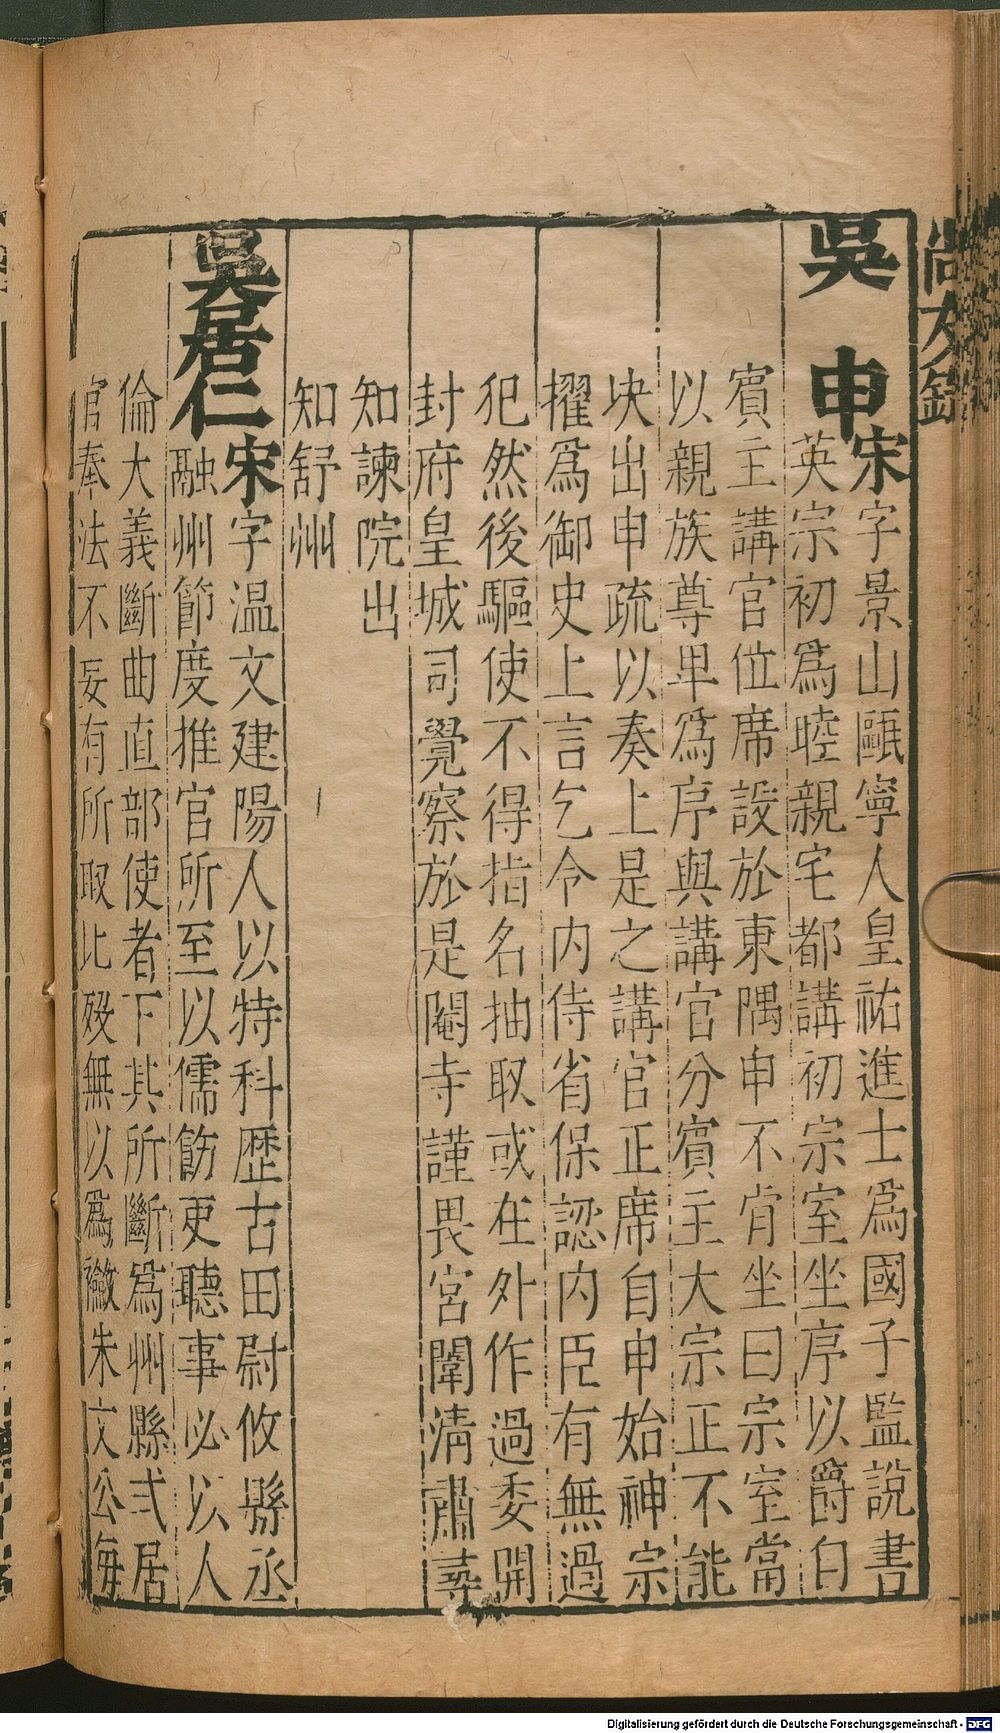 尚友錄
吳申
宋字景山甌寧人皇祐進士為國子監說書
英宗初為睦親宅都講初宗室坐序以爵自
賓主講官位席設於東隅申不肯坐曰宗室當
以親族尊卑為序與講官分賓主大宗正不能
決出申疏以奏上是之講官正席自申始神宗
擢為御史上言乞令內侍省保認內臣有無過
犯然後驅使不得指名抽取或在外作過委開
封府皇城司覺察於是閹寺謹畏宮闈清肅尋
知諫院出
知舒州
吳居仁
宋字温文建陽人以特科歴古田尉攸縣丞
融州節度推官所至以儒飭吏聽事必以人
倫大義斷曲直部使者下其所斷為州縣式居
官奉法不妄有所取比歿無以為襝朱文公每
Digitalisierung gefördert durch die Deutsche Forschungsgemeinschaft - DFG